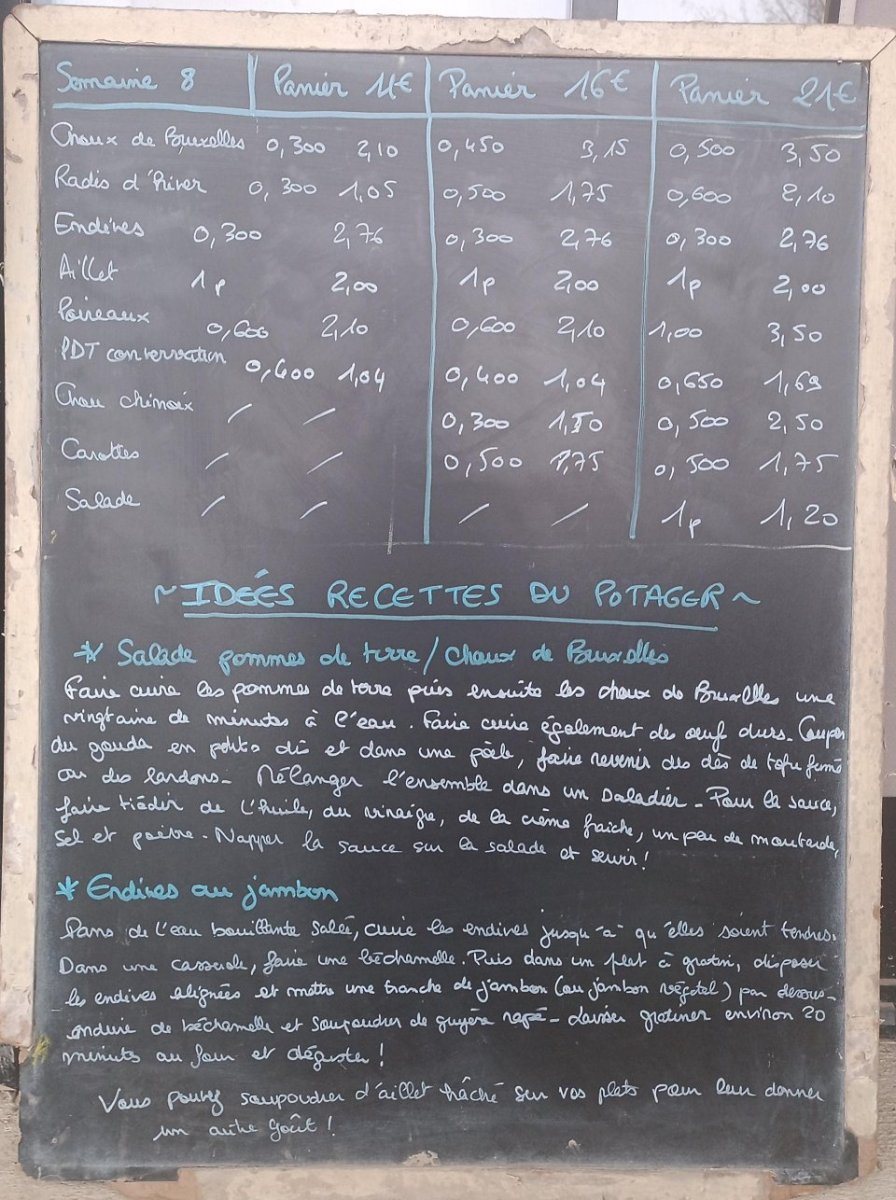 Semaine 8 Panier 11€ Panier 16€ Panier 21€
Choux de Bruxelles 0,300 2,10 0,450 3,15 0,500 3,50
Radis d'hiver 0,300 1,05 0,500 1,75 0,600 2,10
Endives 0,300 2,76 0,300 2,76 0,300 2,76
Aillet 1p 2,00 1p 2,00 1p 2,00
Poireaux 0,600 2,10 0,600 2,10 1,00 3,50
PDT conservation 0,400 1,04 0,400 1,04 0,650 1,69
Chou chinoix / / 0,300 1,50 0,500 2,50
Carottes / / 0,500 1,75 0,500 1,75
Salade / / / / 1p 1,20
~IDEÉS RECETTES DU POTAGER~
* Salade pommes de terre/choux de Bruxelles
Faire cuire les pommes de terre puis ensuite les choux de Bruxelles une
vingtaine de minutes à l'eau. Faire cuire également des œufs durs. Couper
du gouda en petits dés et dans une poêle, faire revenir des dés de tofu fumé
ou des lardons. Mélanger l'ensemble dans un saladier. Pour la sauce,
faire tiédir de l'huile, du vinaigre, de la crème fraîche, un peu de moutarde,
sel et poivre. Napper la sauce sur la salade et servir!
* Endives au jambon
Dans de l'eau bouillante salée, cuire les endives jusqu'à qu'elles soient tendres.
Dans une casserole, faire une béchamelle. Puis dans un plat à gratin, disposer
les endives alignées et mettre une tranche de jambon (ou jambon végétal) par dessus.
enduire de béchamelle et saupoudrer de guyère rapé. Laisser gratiner environ 20
minutes au four et déguster!
Vous pouvez saupoudrer d'aillet hâché sur vos plats pour leur donner
un autre goût!